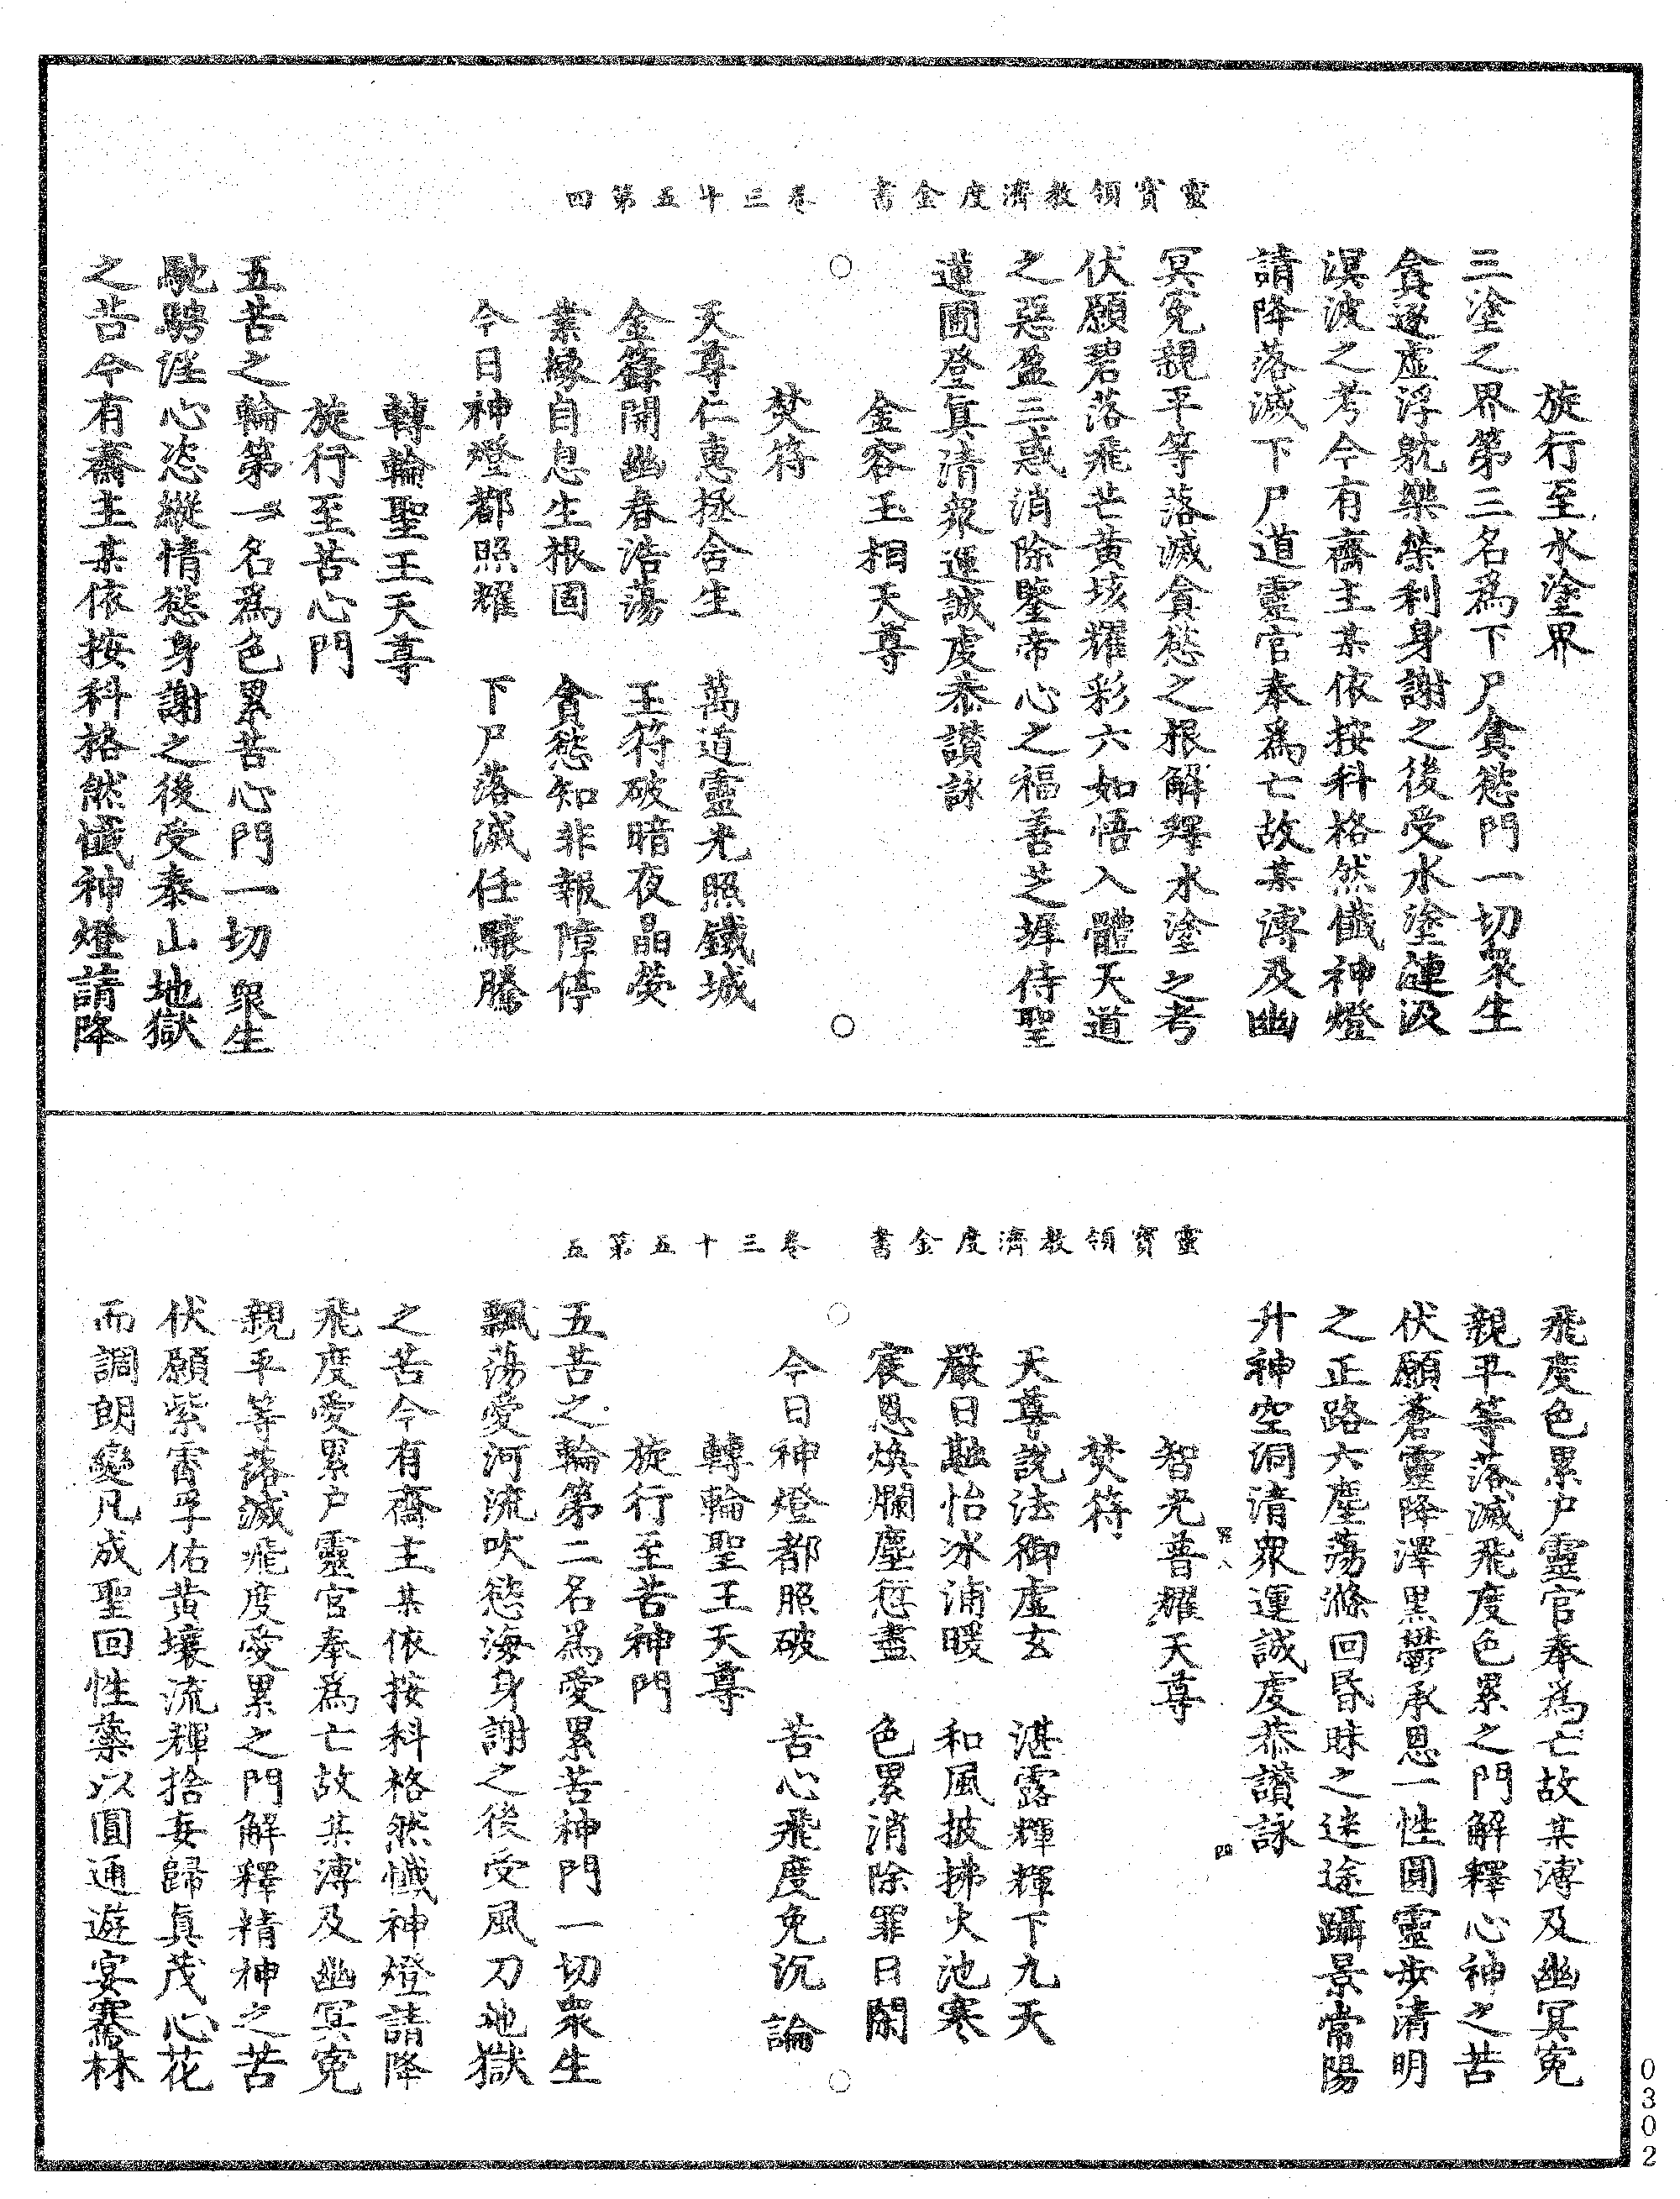 靈寶領教濟度金書　卷三十五第四
旋行至水塗界
三塗之界第三名為下尸貪慾門一切眾生
貪逐虛浮躭樂榮利身謝之後受水塗漣汲
溟波之考今有齋主某依按科格然懺神燈
請降落滅下尸道靈官奉為亡故某溥及幽
冥寃親平等落滅貪慾之根解釋水塗之考
伏願碧落飛芒黃垓耀彩六如悟入體天道
之惡盈三惑消除鑒帝心之福善芝墀侍聖
蓮圃登真清眾運誠虔恭讚詠
金容玉相天尊
○　○
焚符
天尊仁惠拯含生　萬道靈光照鐵城
金籙開幽春浩蕩　玉符破暗夜晶熒
業緣自息生根固　貪慾知非報障停
今日神燈都照耀　下尸落滅任驤騰
轉輪聖王天尊
旋行至苦心門
五苦之輪第一名為色累苦心門一切眾生
馳騁淫心恣縱情慾身謝之後受泰山地獄
之苦今有齋主某依按科格然懺神燈請降
靈寶領教濟度金書　卷三十五第五
飛度色累戶靈官奉為亡故某溥及幽冥寃
親平等落滅飛度色累之門解釋心神之苦
伏願蒼靈降澤黑鬱承恩一性圓靈步清明
之正路六塵蕩滌回昏昧之迷途躡景常陽
升神空洞清眾運誠虔恭讚詠
四
智光普耀天尊
焚符
天尊說法御虛玄　湛露輝輝下九天
嚴日融怡冰浦暖　和風披拂火池寒
宸恩煥爛塵愆盡　色累消除罪日閑
○　○
今日神燈都照破　苦心飛度免沉論
轉輪聖王天尊
旋行至苦神門
五苦之輪第二名為愛累苦神門一切眾生
飄蕩愛河流吹慾海身謝之後受風刀地獄
之苦今有齋主某依按科格然懺神燈請降
飛度愛累戶靈官奉為亡故某溥及幽冥寃
親平等落滅飛度愛累之門解釋精神之苦
伏願紫霄孚佑黃壤流輝捨妄歸真茂心花
而調朗變凡成聖回性藥以圓通遊宴騫林
0302